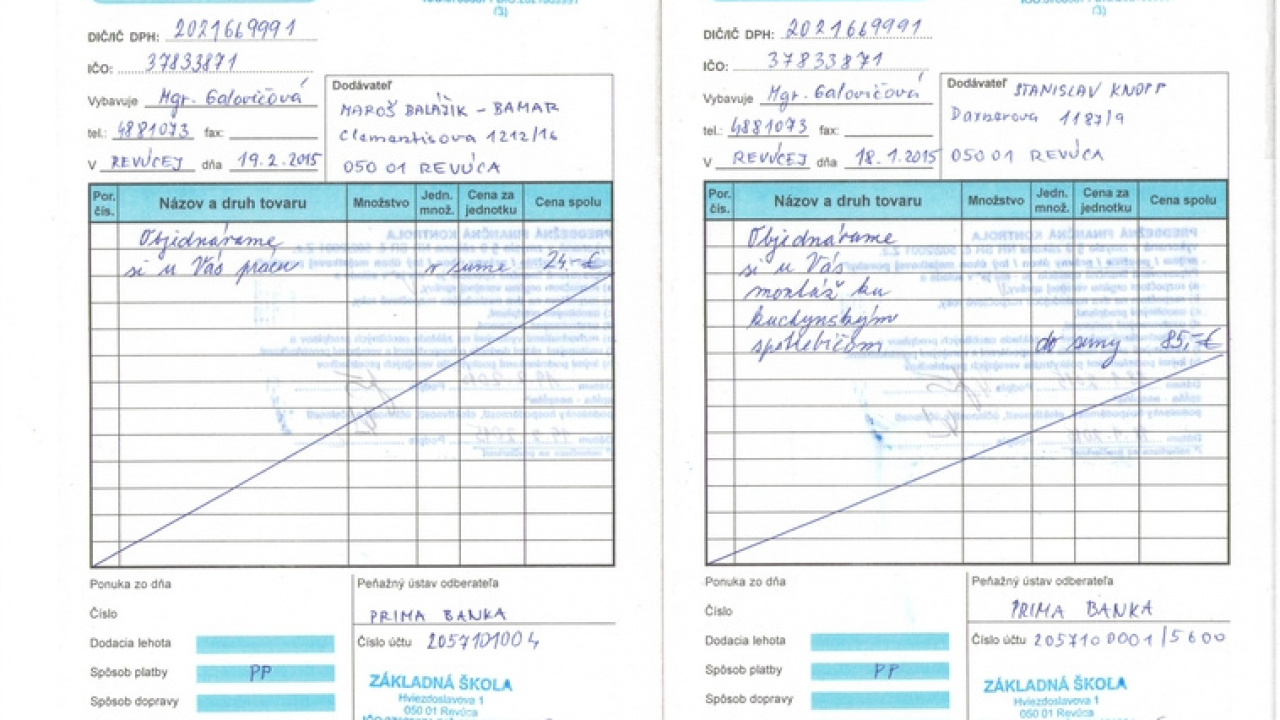 (3)
DIČ/IČ DPH: 2021669991
IČO: 37833871
Vybavuje Mgr. Galovičová
tel.: 4881073 fax:
V REVÚCEJ dňa 19.2.2015
Dodávateľ
MAROŠ BALÁŽIK - BAMAR
Clementisova 1212/16
050 01 REVÚCA
Por. čís. Názov a druh tovaru Množstvo Jedn. množ. Cena za jednotku Cena spolu
Objednávame
si u Vás prácu v sume 24,-€
Ponuka zo dňa
Číslo
Dodacia lehota
Spôsob platby PP
Spôsob dopravy
Peňažný ústav odberateľa
PRIMA BANKA
Číslo účtu 2057101004
ZÁKLADNÁ ŠKOLA
Hviezdoslavova 1
050 01 Revúca
(3)
DIČ/IČ DPH: 2021669991
IČO: 37833871
Vybavuje Mgr. Galovičová
tel.: 4881073 fax:
V REVÚCEJ dňa 18.1.2015
Dodávateľ STANISLAV KNOPP
Daxnerova 1187/9
050 01 REVÚCA
Por. čís. Názov a druh tovaru Množstvo Jedn. množ. Cena za jednotku Cena spolu
Objednávame
si u Vás
montáž ku
kuchynským
spotrebičom do sumy 85,-€
Ponuka zo dňa
Číslo
Dodacia lehota
Spôsob platby PP
Spôsob dopravy
Peňažný ústav odberateľa
PRIMA BANKA
Číslo účtu 2057100001/5600
ZÁKLADNÁ ŠKOLA
Hviezdoslavova 1
050 01 Revúca